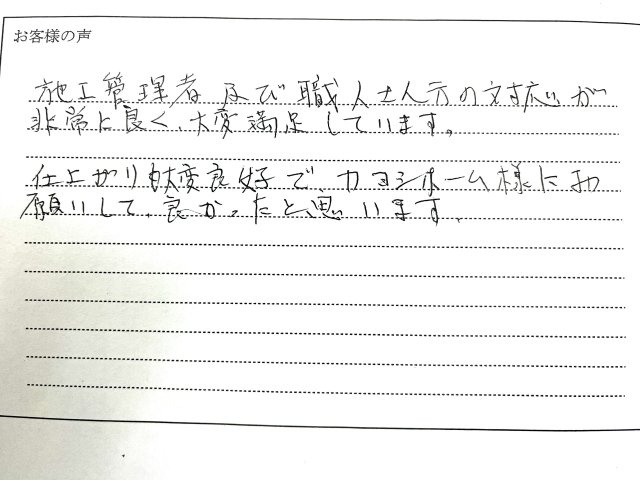 お客様の声
施工管理者及び職人士人方の対応が
非常に良く、大変満足しています。
仕上がりも大変良好で、カヨシホーム様にお
願いして、良かったと思います。